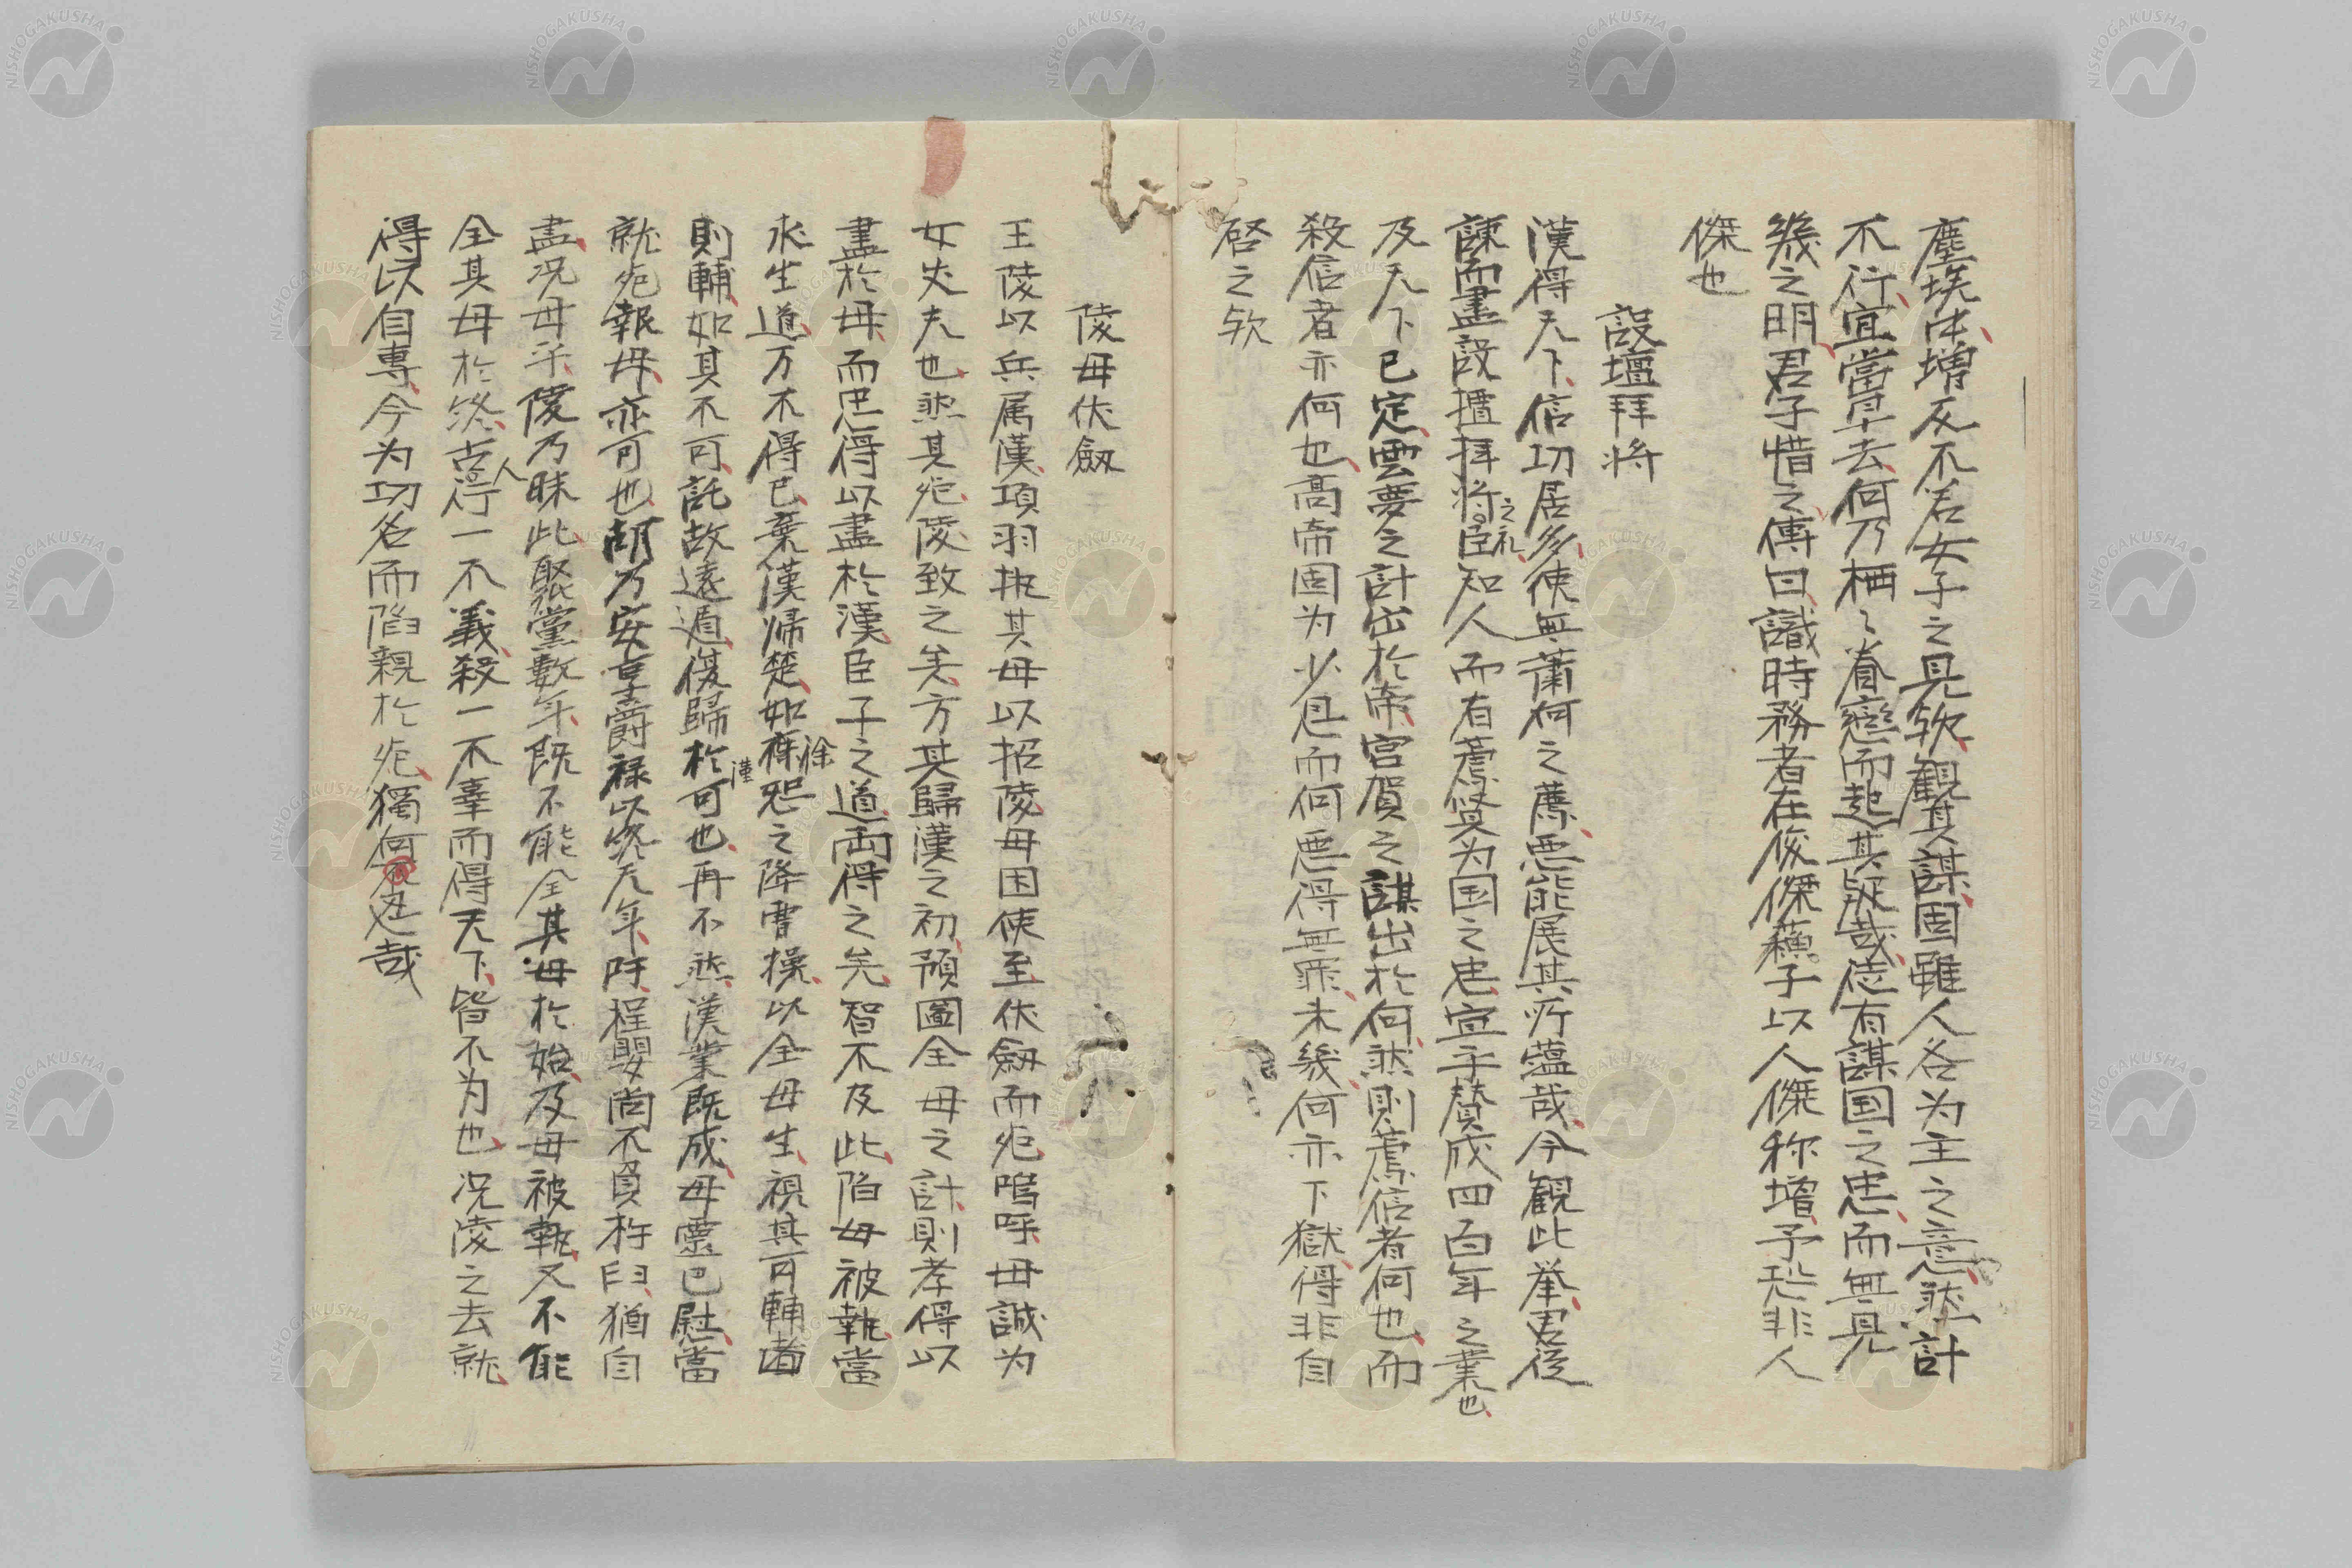 塵埃中、増反不若女子之見欤、観其謀、固雖人各为主之意、然計
不行、宜當早去、何乃栖〻眷戀而起其疑哉、徒有謀国之忠、而無見
幾之明、君子惜之、傳曰、識時務者在俊傑、蘓子以人傑称増、予恐非人
傑也
設壇拜将
漢得天下、信功居多、使無蕭何之薦、悪能展其所蘊哉、今観此挙、君従
諌而盡設壇拝将之礼、臣知人而有薦賢为国之忠、宜乎賛成四百年之業也、
及天下已定、雲夢之計出於帝、宮賀之謀出於何、然則薦信者何也、而
殺信者亦何也、高帝固为少恩而何悪得無罪、未幾何亦下獄、得非自
啓之欤
陵母伏劔
王陵以兵属漢、項羽执其母以招陵、母因使至伏劔而死、嗚呼、母誠为
女丈夫也、然其死、陵致之矣、方其歸漢之初、預圖全母之計、則孝得以
盡於母、而忠得以盡於漢、臣子之道、両得之矣、智不及此、陷母被執、當
求生道、万不得已、棄漢帰楚、如徐庶之降曹操、以全母生、視其可輔者
則輔、如其不可託、故遠遁、復歸於漢可也、再不然、漢業既成、母靈已慰、當
就死報母、亦可也、胡乃安享爵禄以終天年、吁、程嬰尚不負杵臼、猶自
盡、况母乎、陵乃昧此、聚黨數年、既不能全其母於始、及母被執、又不能
全其母於終、古人行一不義、殺一不辜而得天下、皆不为也、况陵之去就、
得以自專、今为功名而陷親於死、獨何忍哉